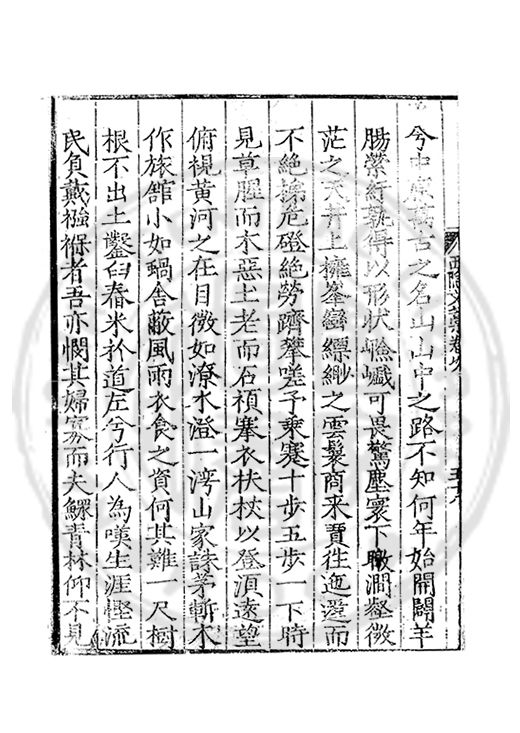 今中原萬古之名山山中之路不知何年始開闢羊
腸縈紆孰得以形狀嶮巇可畏驚塵寰下瞰澗壑微
茫之天井上擁峯巒縹緲之雲鬟商来賈往迤邐而
不絶梯危磴絶勞躋攀嗟予乗蹇十步五步一下時
見草腥而木惡土老而石頑搴衣扶杖以登湏逺望
俯視黄河之在目微如潦水澄一湾山家誅茅斬木
作旅舘小如蝸舎蔽風雨衣食之資何其難一尺樹
根不出土鑿臼舂米於道左兮行人為嘆生涯慳流
民負戴襁褓者吾亦憫其婦寡而夫鰥青林仰不見